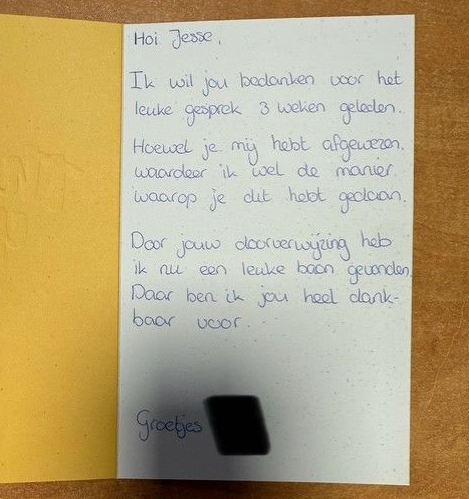 Hoi Jesse,
Ik wil jou bedanken voor het
leuke gesprek 3 weken geleden.
Hoewel je mij hebt afgewezen,
waardeer ik wel de manier
waarop je dit hebt gedaan.
Door jouw doorverwijzing heb
ik nu een leuke baan gevonden.
Daar ben ik jou heel dank-
baar voor.
Groetjes